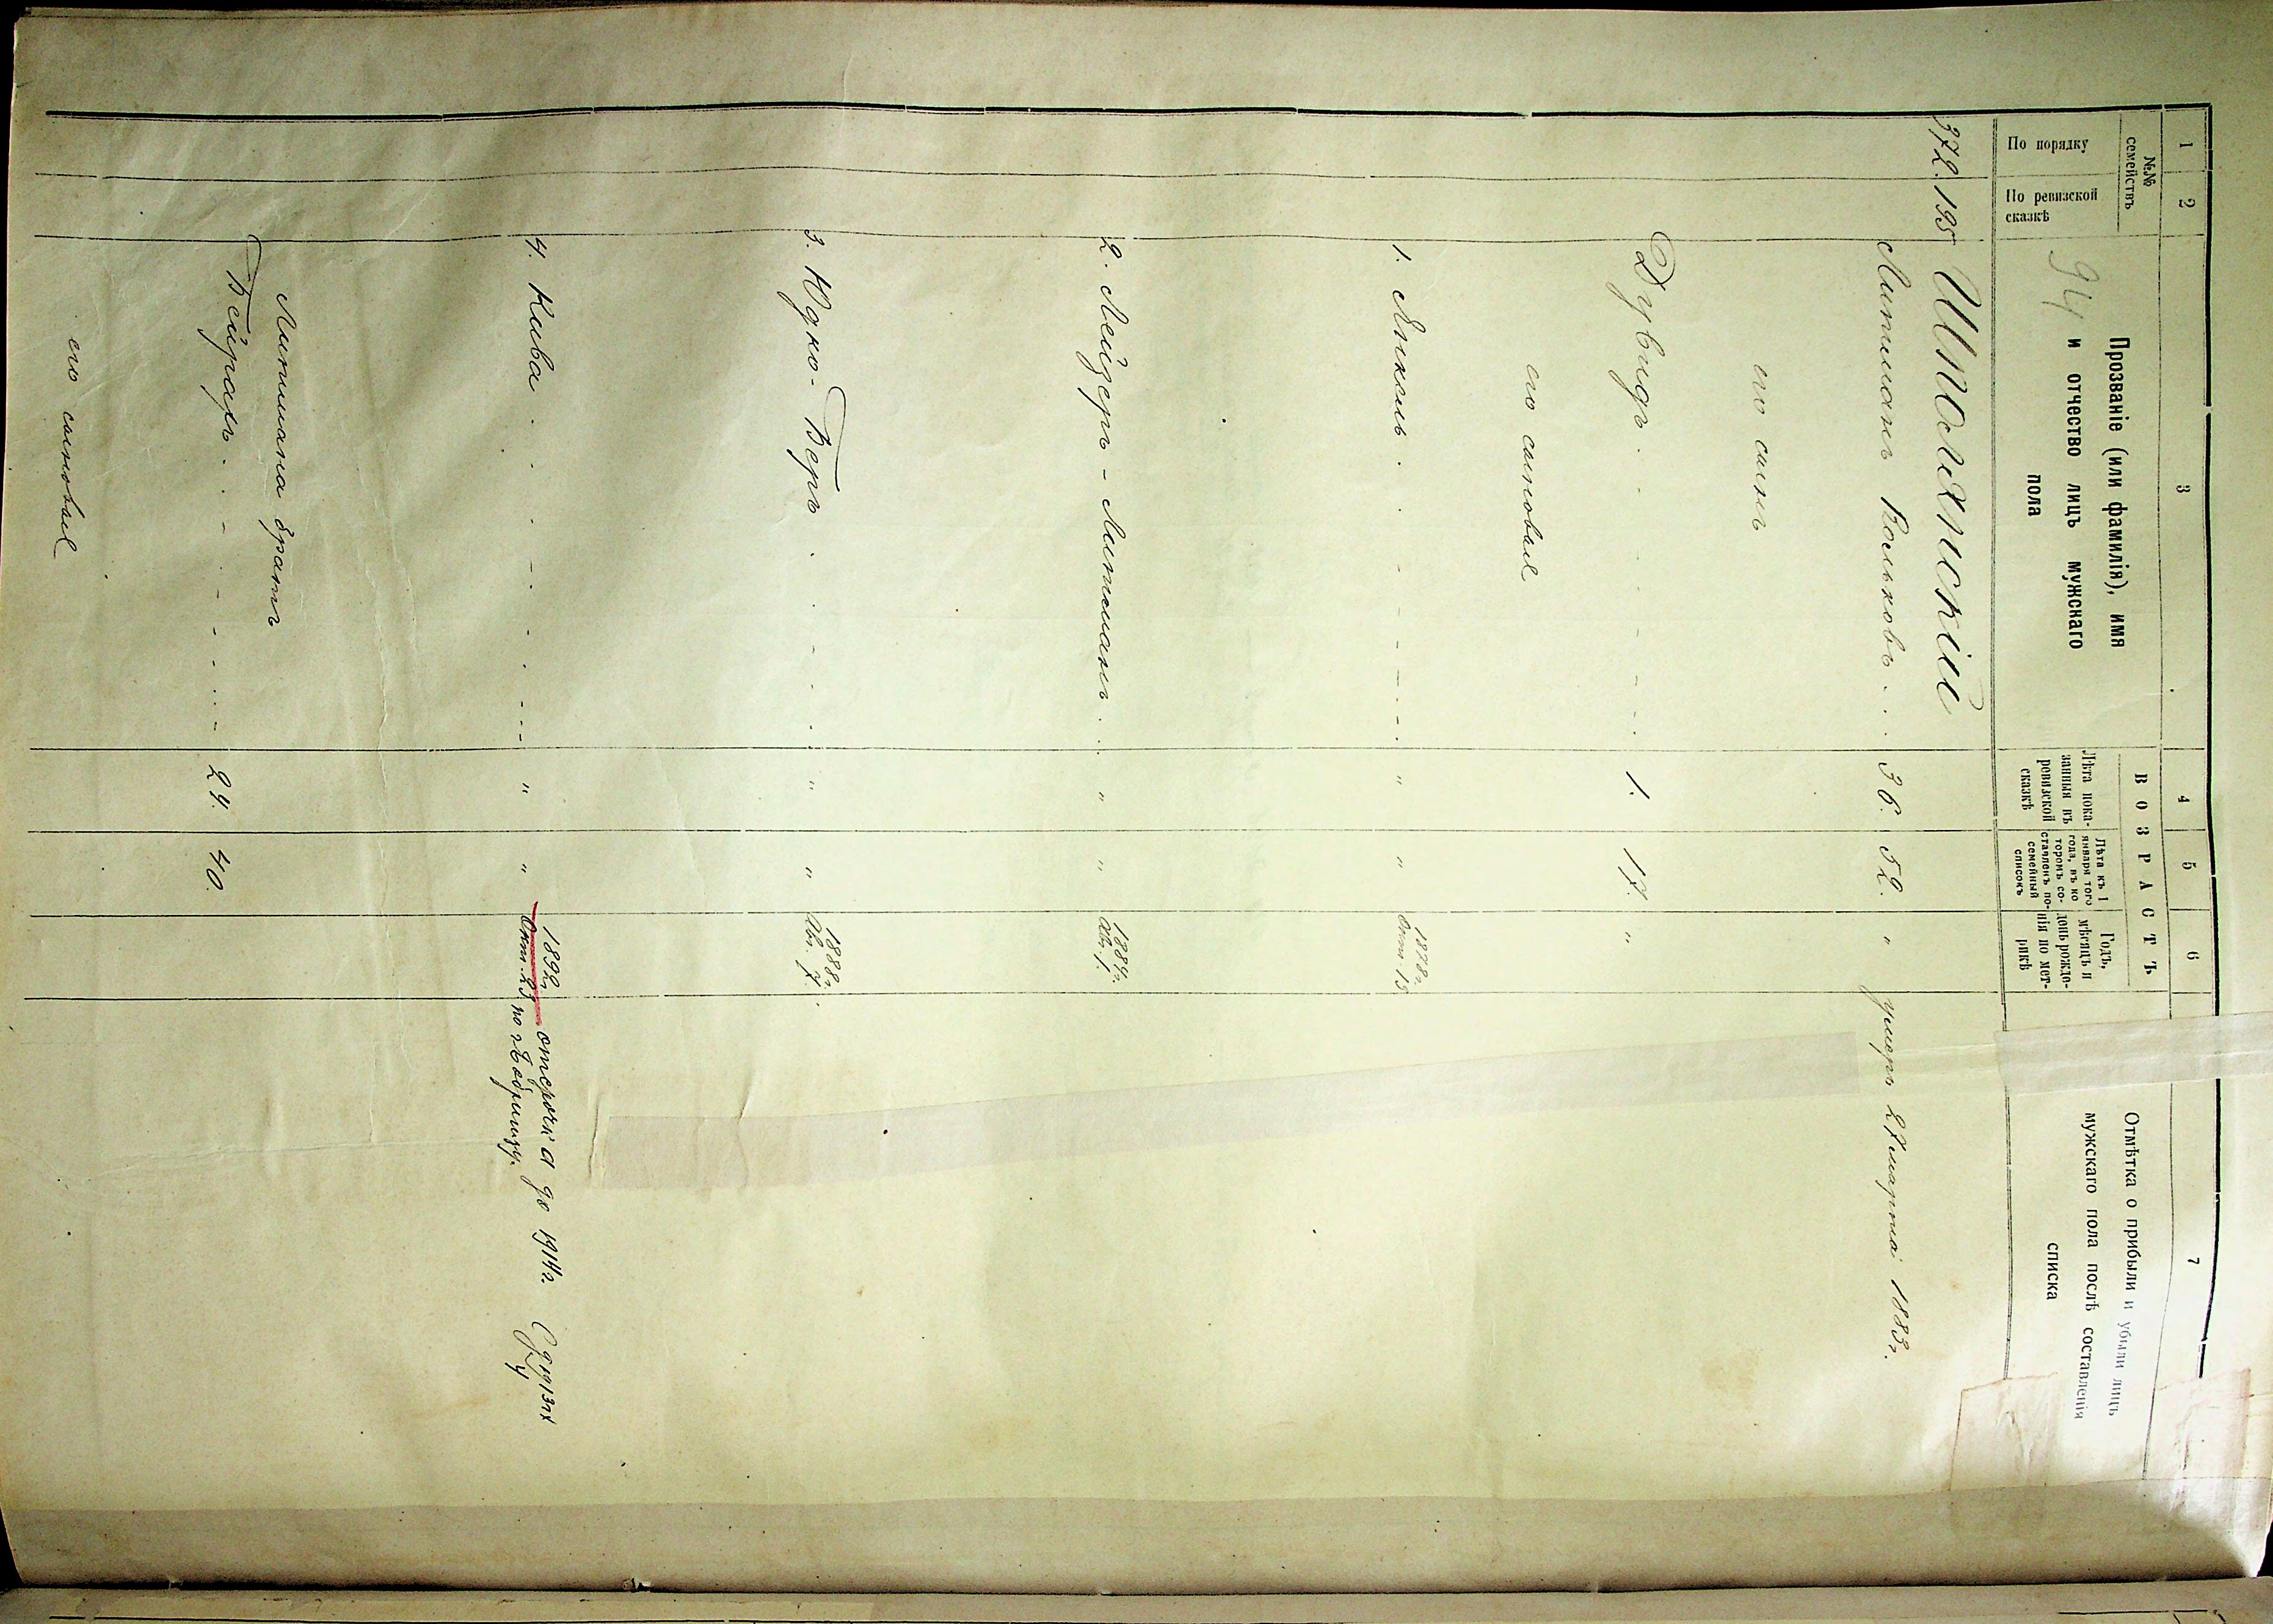 1 2 3 4 5 6 7
№№ семействъ
По порядку
По ревизской сказкѣ
Прозваніе (или фамилія), имя
и отчество лицъ мужскаго
пола
94
ВОЗРАСТЪ
Лѣта пока-
занныя въ
ревизской
сказкѣ
Лѣта къ 1
января того
года, въ ко
торомъ со-
ставленъ по-
семейный
списокъ
Годъ,
мѣсяцъ и
день рожде-
нія по мет-
рикѣ
Отмѣтка о прибыли и убыли лицъ
мужскаго пола послѣ составленія
списка
372. 195
Липманъ 36. 52. " умеръ 27 марта 1883 г.
его сынъ
1. 17. "
его сыновья
1. Янкель " " 1878 г.
2. Лейзеръ-Липманъ " " 1884 г.
3. Юдко-Беръ " " 1888 г.
4. Кива " " 1892 г. отсрочка до 1914 г.
Окт. 23
Липмана братъ
24. 40.
его сыновья